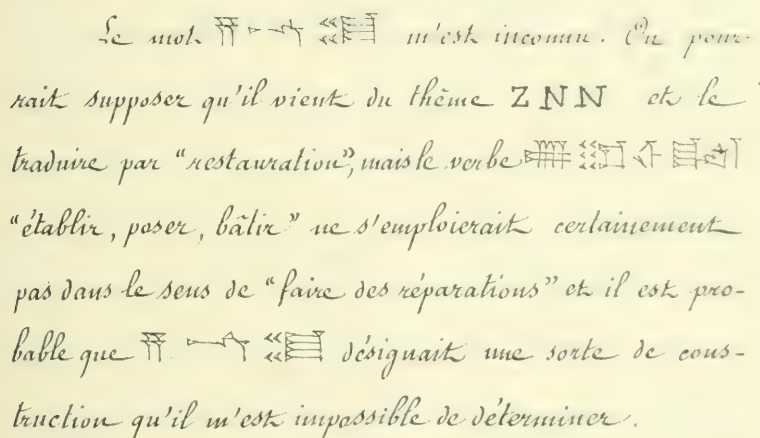 Le mot m'est inconnu. On pour-
rait supposer qu'il vient du thême ZNN et le
traduire par "restauration", mais le verbe
"établir, poser, bâtir" ne s'emploierait certainement
pas dans le sens de "faire des réparations" et il est pro-
bable que désignait une sorte de cons-
truction qu'il m'est impossible de déterminer.